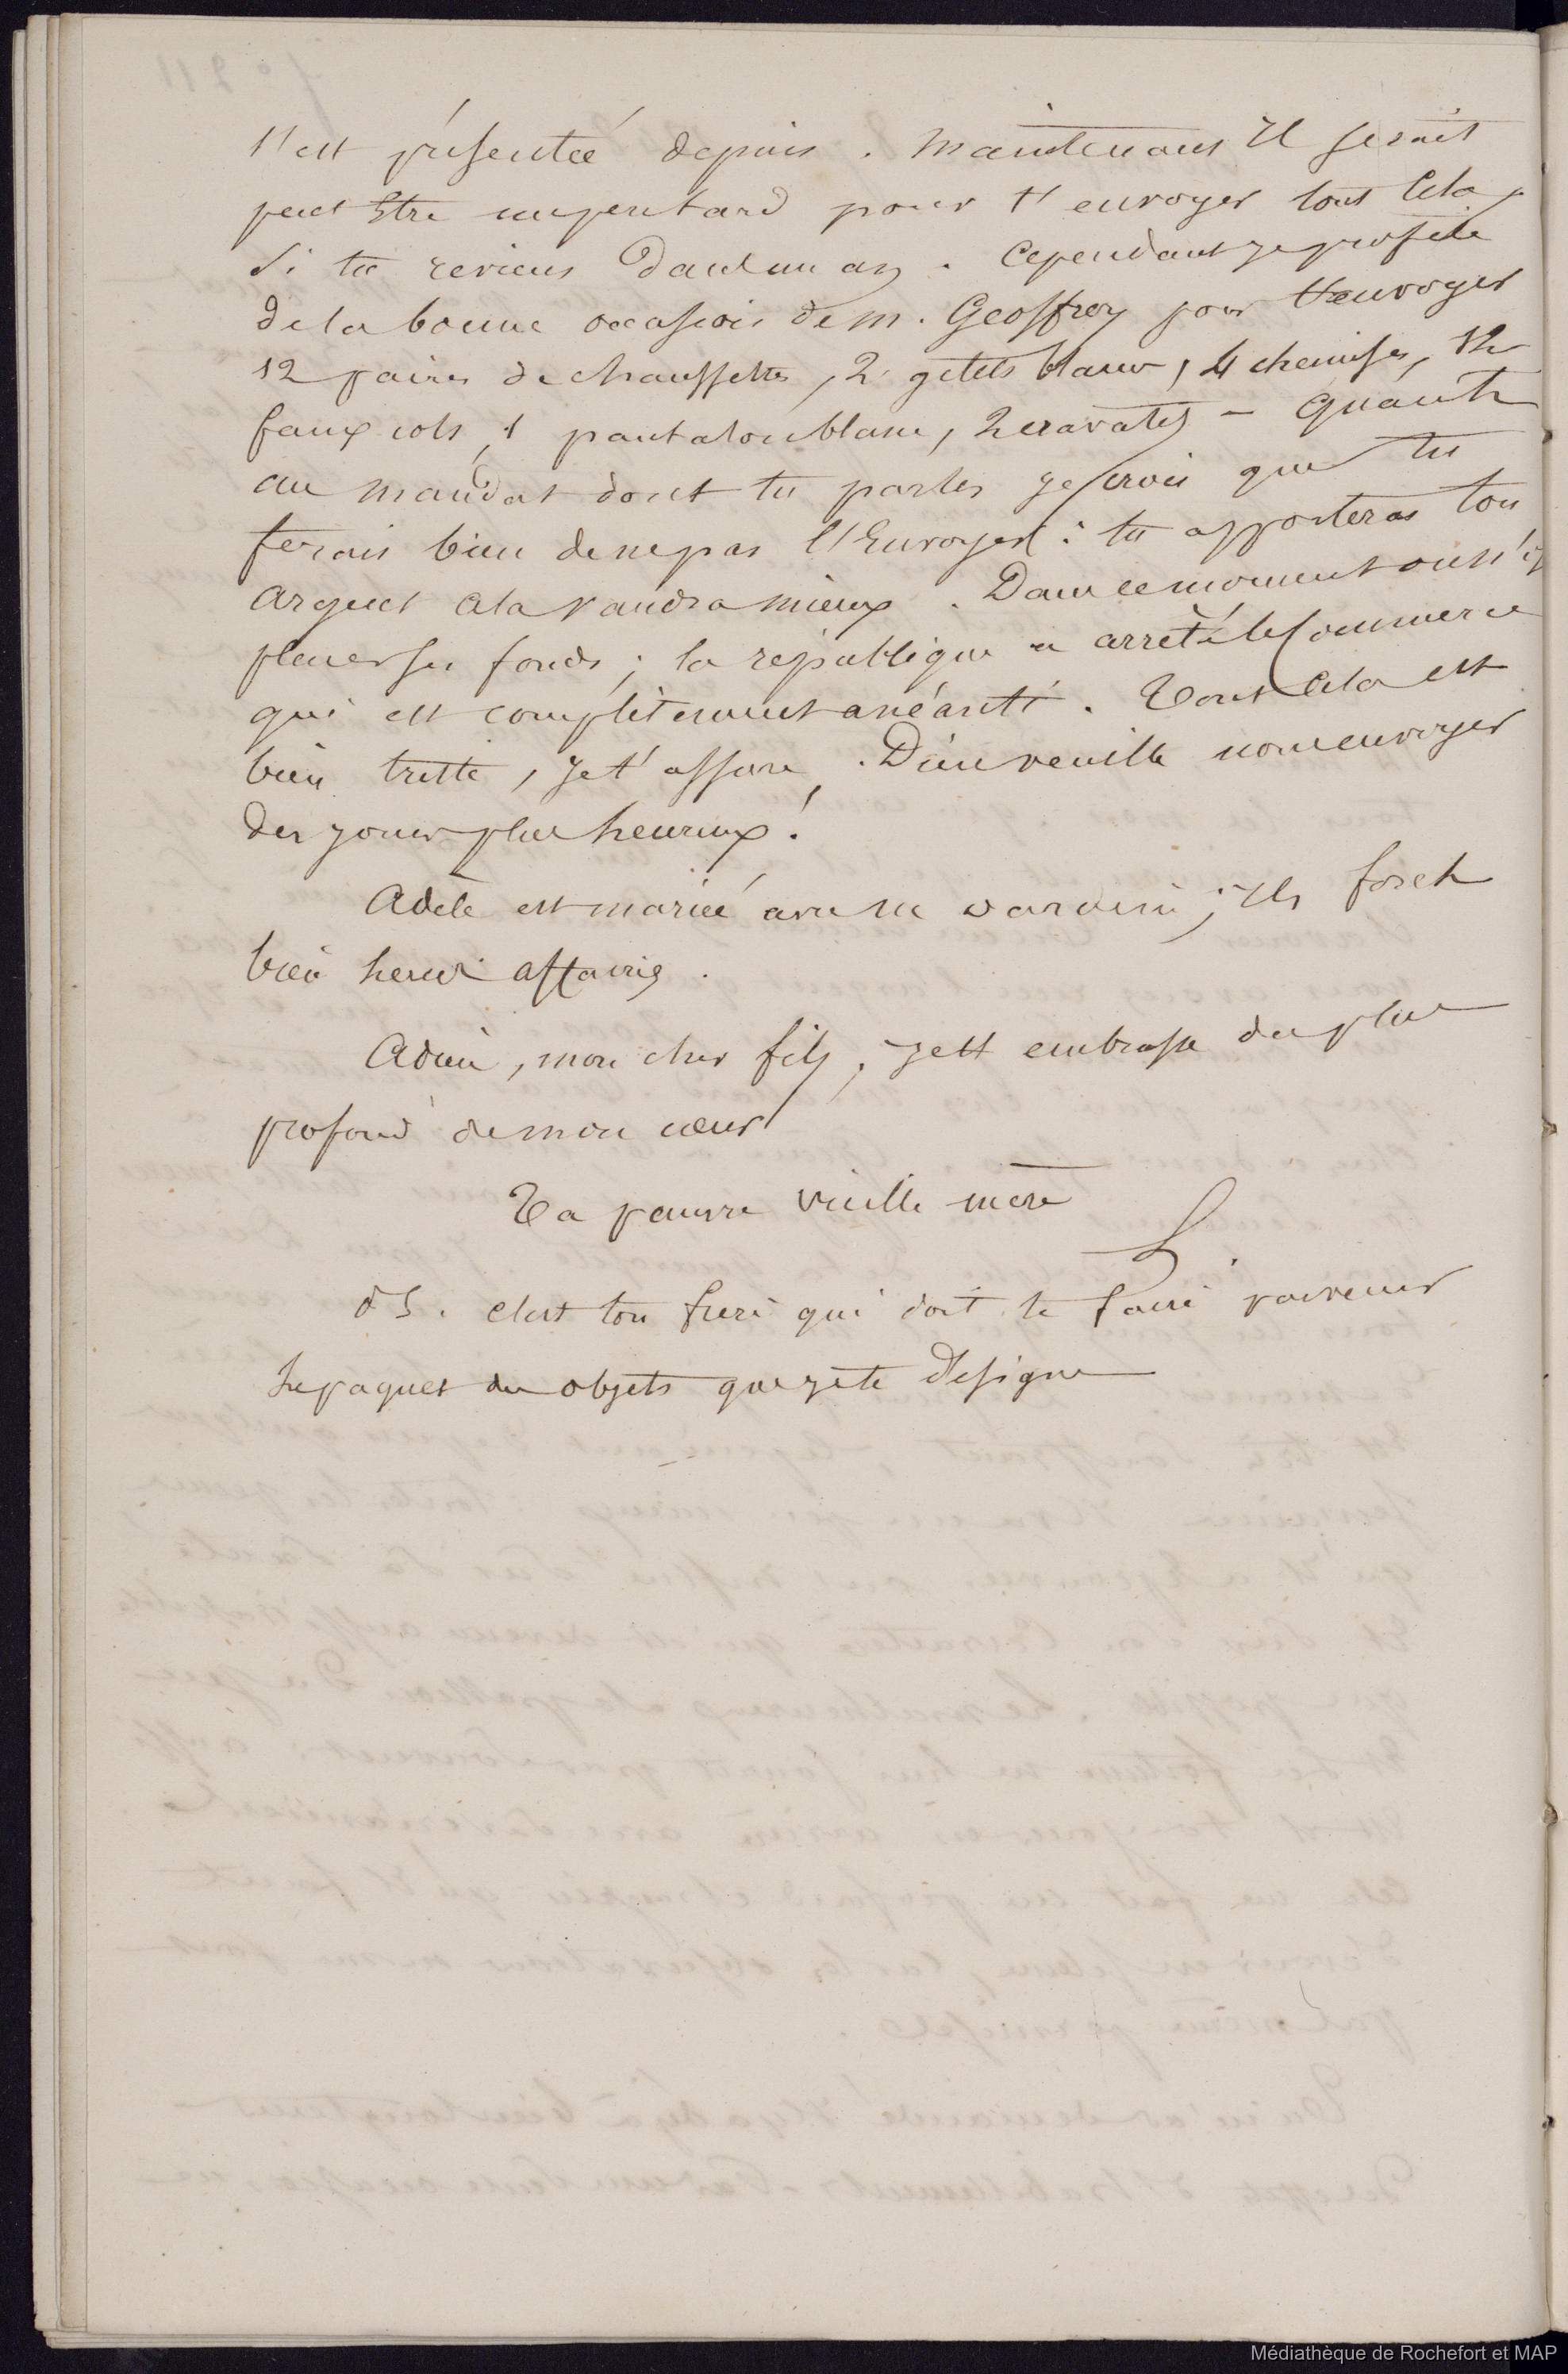 s'est présentée depuis. Maintenant Il serait
peut Etre un peu tard pour t'envoyer tout Cela,
Si tu reviens Dans un an. Cependant je profite
de la bonne occasion de m. Geoffroy pour t'envoyer
12 paires de chaussettes, 2 gilets blancs, 4 chemises, 12
faux cols, 1 pantalon blanc, 2 cravates - Quant
au mandat dont tu parles je crois que tu
ferais bien de ne pas l'Envoyer: tu apporteras ton
argent cela vaudra mieux. Dans ce moment on n'
ses fonds; la république a arrêté le Commerce
qui est complètement anéanti. Tout Cela est
bien triste, je t'assure. Dieu veuille nous envoyer
des jours plus heureux!
Adèle est mariée avec ; Ils font
bien leurs affaires.
Adieu, mon cher fils, je t'embrasse du plus
profond de mon cœur
Ta pauvre vieille mère
L
PS. c'est ton frère qui doit te faire parvenir
Le paquet des objets que je te Désigne
Médiathèque de Rochefort et MAP